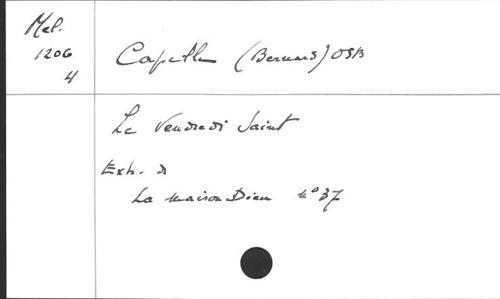 Mel.
1206
4
Capelle (Bernard) OSB
Le Vendredi Saint
Extr. de
La Maison Dieu N° 37